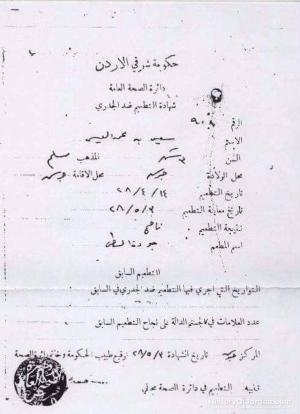 حكومة شرقي الاردن
دائرة الصحة العامة
شهادة التطعيم ضد الجدري
الرقم
الاسم سعيد بن محمد
السن المذهب مسلم
محل الولادة جرش محل الاقامة جرش
تاريخ التطعيم ٢٨/٤/١٤
تاريخ معاينة التطعيم ٢٨/٥/٦
نتيجة التطعيم ناجح
اسم المطعم جودة
التطعيم السابق
التواريخ التي اجري فيها التطعيم ضد الجدري في السابق
عدد العلامات في الجسم الدالة على نجاح التطعيم السابق
المركز جرش تاريخ الشهادة ٢٨/٥/٦ توقيع طبيب الحكومة وختم دائرة الصحة
تنبيه التطعيم في دائرة الصحة مجاني
HistoryOfJordan.com